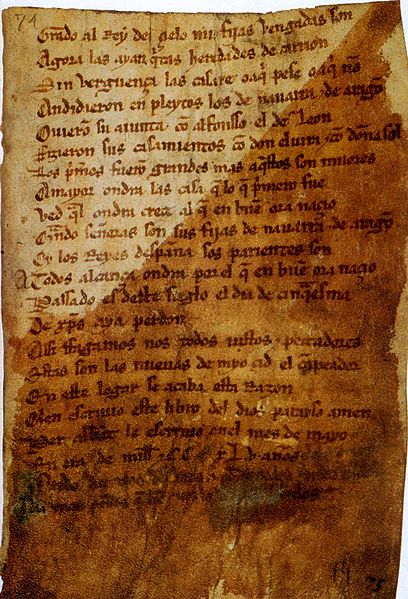 71
Grado al Rey del çielo mis fijas vengadas son
Agora las ayan q̃tas heredades de carrion
Sin verguença las casare o aq̃ pese o aq̃ nõ
Andidieron en pleytos los de nauarra & de aragõ
Ouierõ su aiunta cõ alfonsso el de Leon
Fizieron sus casamientos cõ don eluira & cõ doña sol
Los p̃meros fuerõ grandes mas aq̃stos son miiores
A mayor ondra las casa q̃ lo q̃ p̃mero fue
Ved q̃l ondra creçe al q̃ en buẽ ora naçio
Q̃ndo señoras son sus fijas de nauarra & de aragõ
Oy los Reyes despaña sos parientes son
A Todos alcança ondra por el q̃ en buẽ ora naçio
Passado es deste sieglo el dia de cinq̃esma
De xp̃s aya perdon
Assi ffagamos nos todos iustos & peccadores
Estas son las nueuas de myo çid el cãpeador
En este logar se acaba esta Razon
Quien escriuio este libro del dios parayso amen
Per abbat le escriuio enel mes de mayo
En era de mill & .C.C xL.v. años
74
75